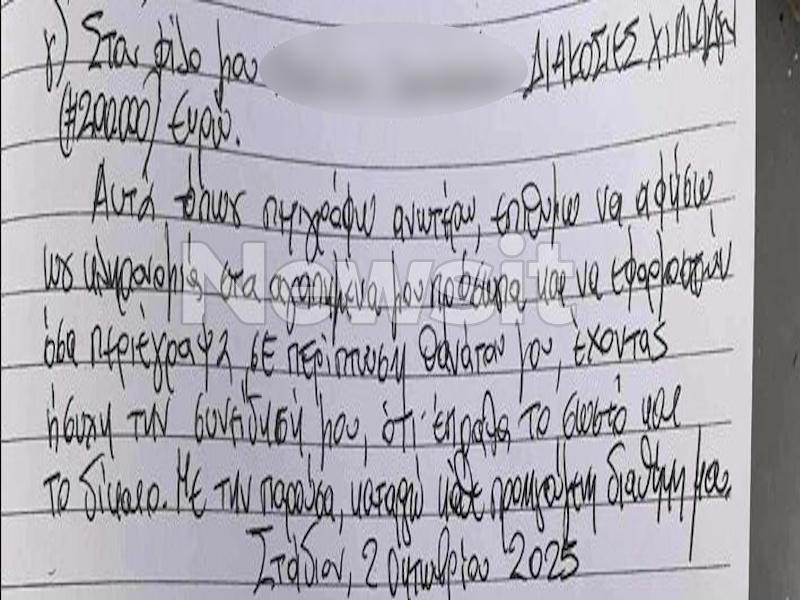 γ) Στον φίλο μου ΔΙΑΚΟΣΙΕΣ ΧΙΛΙΑΔΩΝ
(#200.000) Ευρώ.
Αυτά όπως περιγράφω ανωτέρω, επιθυμώ να αφήσω
ως κληρονομιά στα αγαπημένα μου πρόσωπα και να εφαρμοστούν
όσα περιέγραψα, σε περίπτωση θανάτου μου, έχοντας
ήσυχη την συνείδησή μου, ότι έπραξα το σωστό και
το δίκαιο. Με την παρούσα, καταργώ κάθε προηγούμενη διαθήκη μου.
Στάδιον, 2 Οκτωβρίου 2025
Newsit